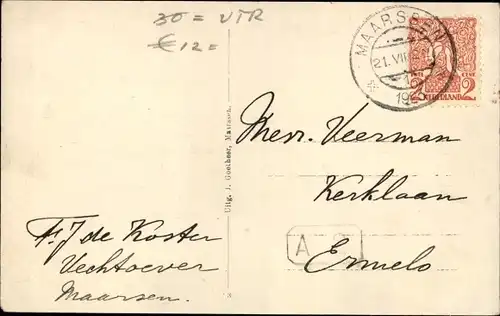 30 = UTR
€ 12 =
MAARSSEN
21.VII
2 CENT 2
NEDERLAND
Mevr. Veerman
Kerklaan
Ermelo
A
F. J de Koster
Vechtoever
Maarsen.
Uitg. J. Goetheer, Maarssen.